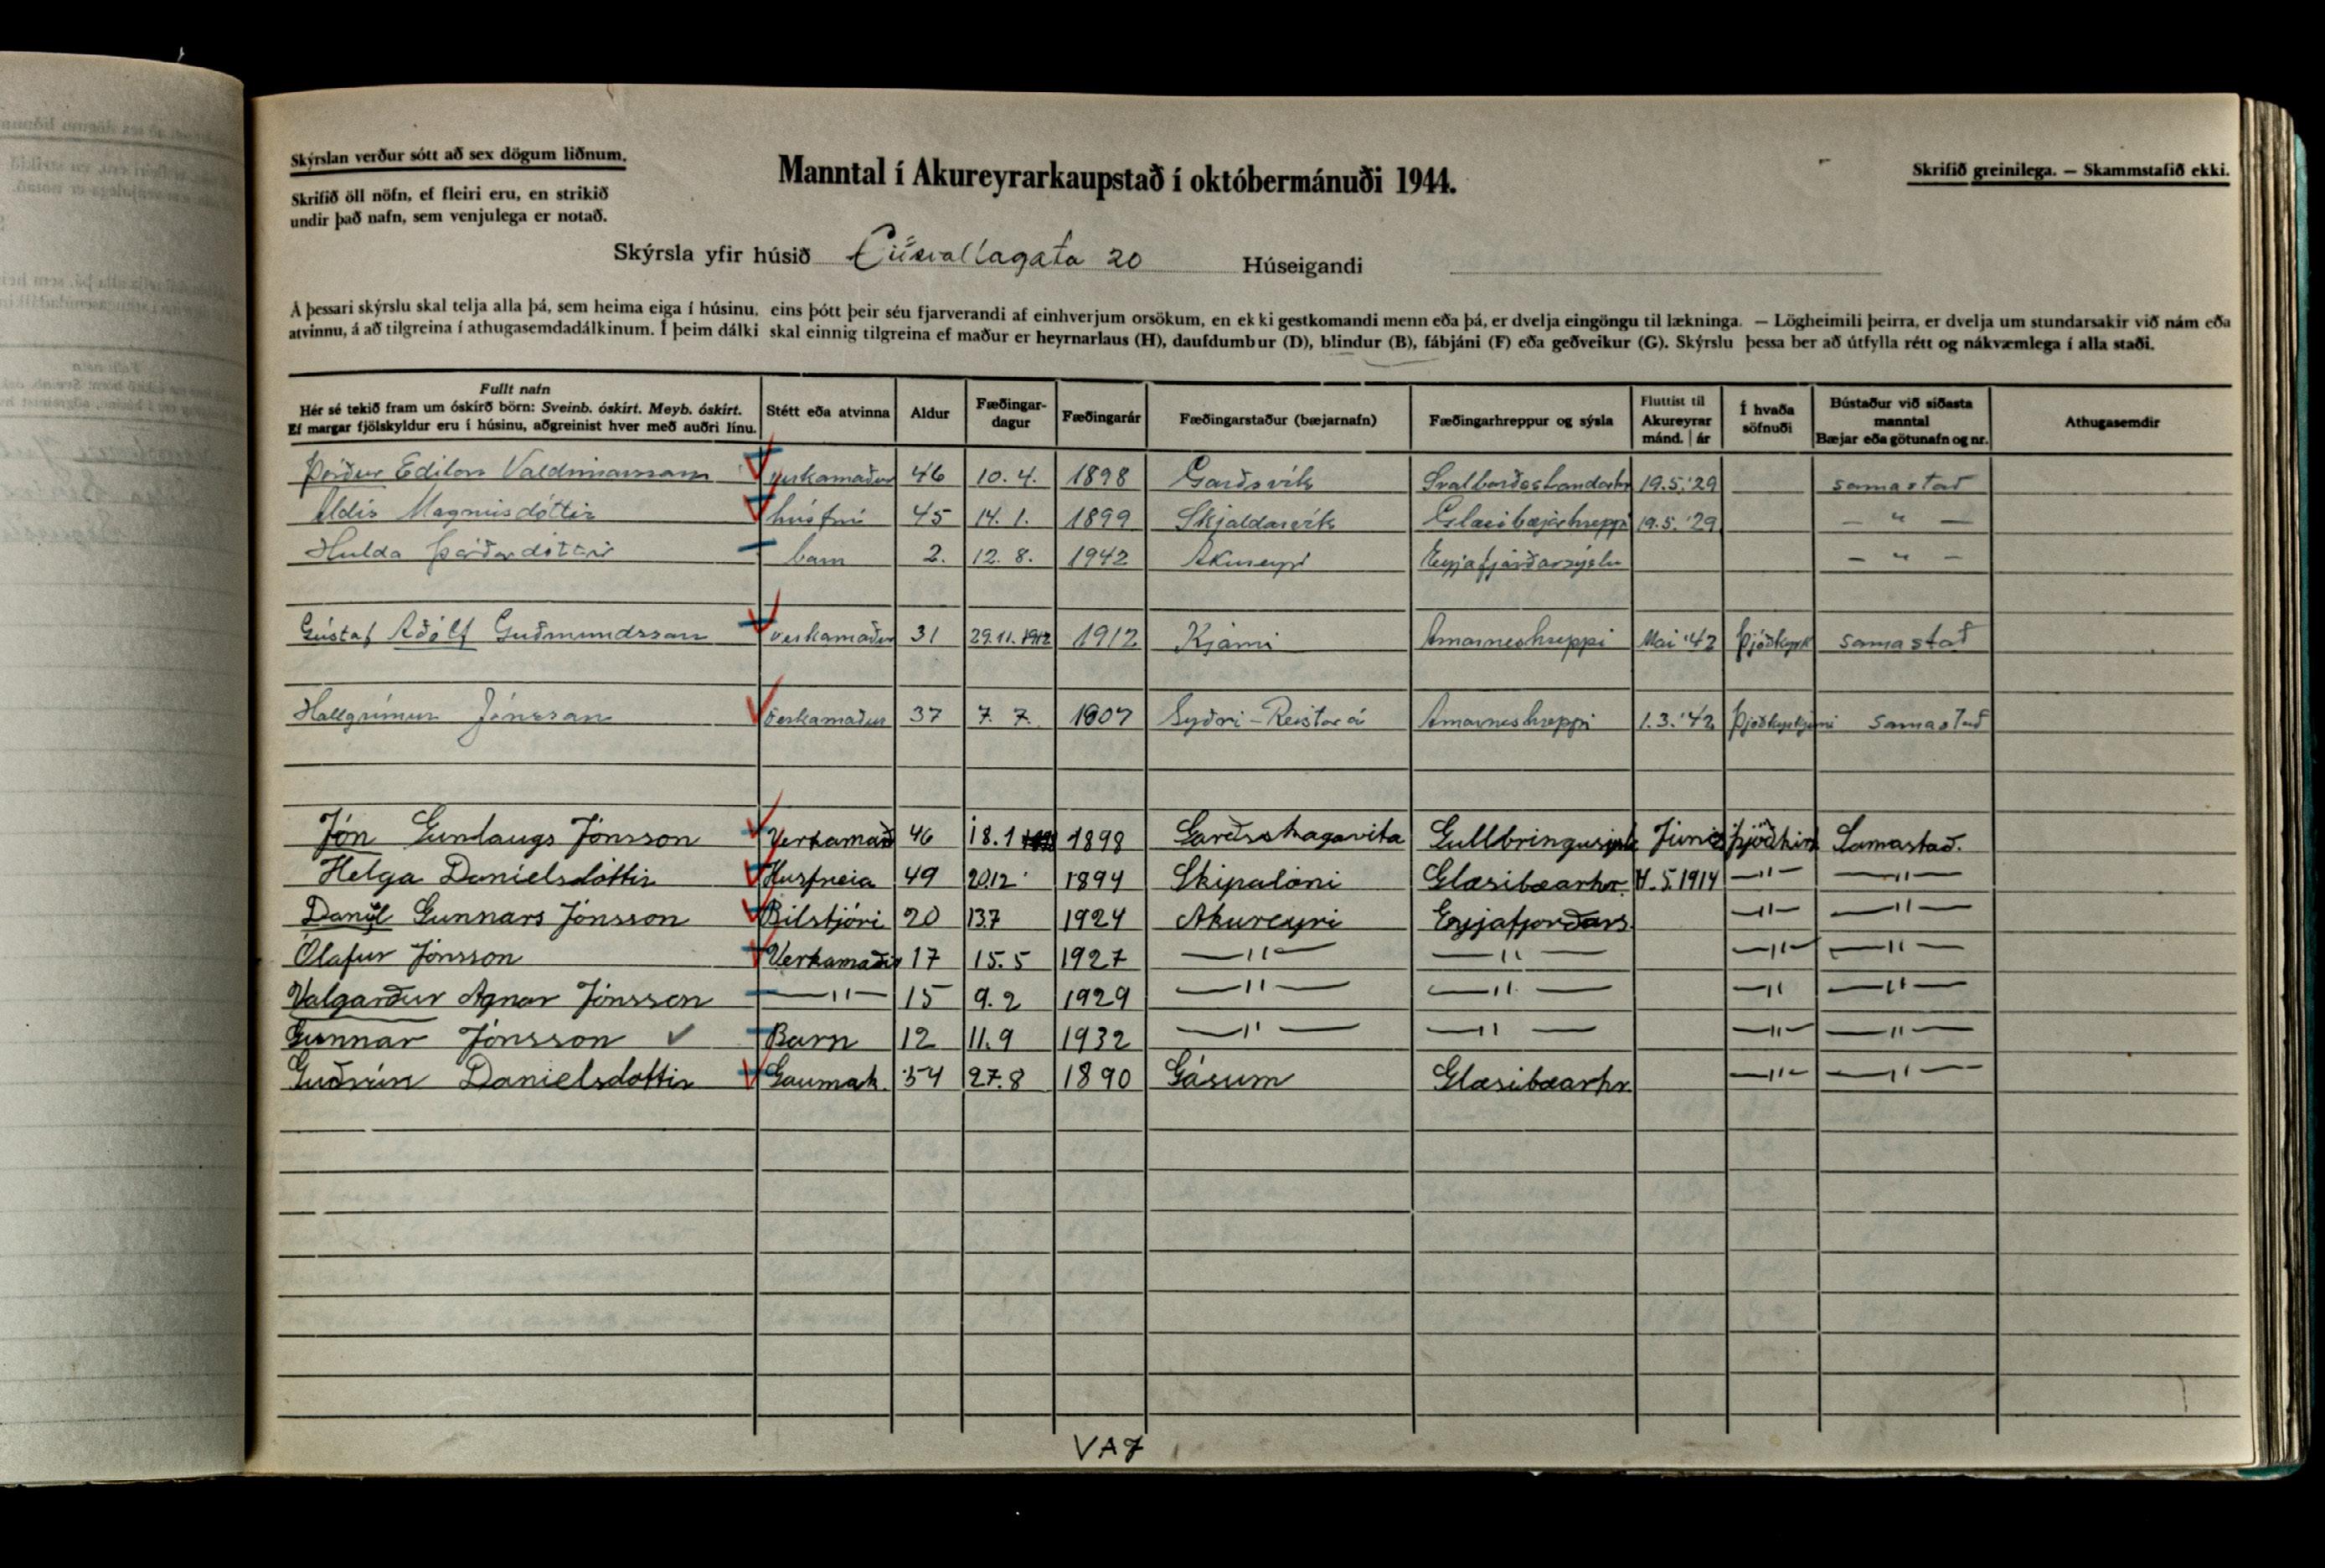 Skýrslan verður sótt að sex dögum liðnum.
Skrifið öll nöfn, ef fleiri eru, en strikið
undir það nafn, sem venjulega er notað.
Manntal í Akureyrarkaupstað í októbermánuði 1944.
Skrifið greinilega. — Skammstafið ekki.
Skýrsla yfir húsið 20 Húseigandi
Á þessari skýrslu skal telja alla þá, sem heima eiga í húsinu, eins þótt þeir séu fjarverandi af einhverjum orsökum, en ekki gestkomandi menn eða þá, er dvelja eingöngu til lækninga. — Lögheimili þeirra, er dvelja um stundarsakir við nám eða
atvinnu, á að tilgreina í athugasemdadálkinum. Í þeim dálki skal einnig tilgreina ef maður er heyrnarlaus (H), daufdumbur (D), blindur (B), fábjáni (F) eða geðveikur (G). Skýrslu þessa ber að útfylla rétt og nákvæmlega í alla staði.
Fullt nafn
Hér sé tekið fram um óskírð börn: Sveinb. óskírt. Meyb. óskírt.
Ef margar fjölskyldur eru í húsinu, aðgreinist hver með auðri línu.
Stétt eða atvinna
Aldur
Fæðingar-
dagur
Fæðingarár
Fæðingarstaður (bæjarnafn)
Fæðingarhreppur og sýsla
Fluttist til
Akureyrar
mánd. | ár
Í hvaða
söfnuði
Bústaður við síðasta
manntal
Bæjar eða götunafn og nr.
Athugasemdir
Þórður Edilon Valdimarsson verkamaður 46 10. 4. 1898 Garðsvík 19.5.'29 samastað
Aldís Magnúsdóttir húsfrú 45 14. 1. 1899 Skjaldarvík Glæsibæjarhreppi 19.5.'29 — " —
Hulda Þórðardóttir barn 2. 12. 8. 1942 Akureyri Eyjafjarðarsýslu — " —
Gústaf Aðólf Guðmundsson verkamaður 31 29.11.1912 1912 Arnarneshreppi Mai '42 Þjóðkyrk samastað
Hallgrímur Jónsson verkamaður 37 7. 7. 1907 Syðri-Reistará Arnarneshreppi 1.3.'42 samastað
Jón Gunlaugs Jónsson Verkamað 46 18.1 1898 Garðsskagavita Júní Samastað.
Helga Danielsdóttir Husfreia 49 20.12 1894 Skipalóni Glæsibæarhr. 5.1914 —"— —"—
Daníel Gunnars Jónsson Bílstjóri 20 13.7 1924 Akureyri Eyjafjorðars. —"— —"—
Ólafur Jónsson Verkamaður 17 15.5 1927 —"— —"— —"— —"—
Valgarður Agnar Jónsson —"— 15 9.2 1929 —"— —"— —"— —"—
Gunnar Jónsson ✓ Barn 12 11.9 1932 —"— —"— —"— —"—
Guðrún Danielsdottir Saumak. 54 27.8 1890 Gásum Glæsibæarhr. —"— —"—
VAJ